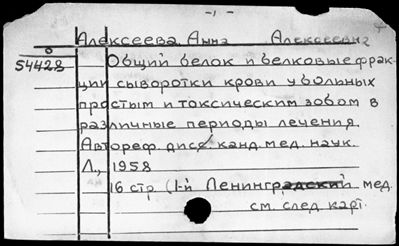 -1-
Алексеева Анна Алексеевна
0
54428
Общий белок и белковые фрак-
ции сыворотки крови у больных
простым и токсическим зобом в
различные периоды лечения.
Автореф. дисс. канд. мед. наук.
Л., 1958
16 стр. (1-й Ленинградский мед.
см. след. карт.